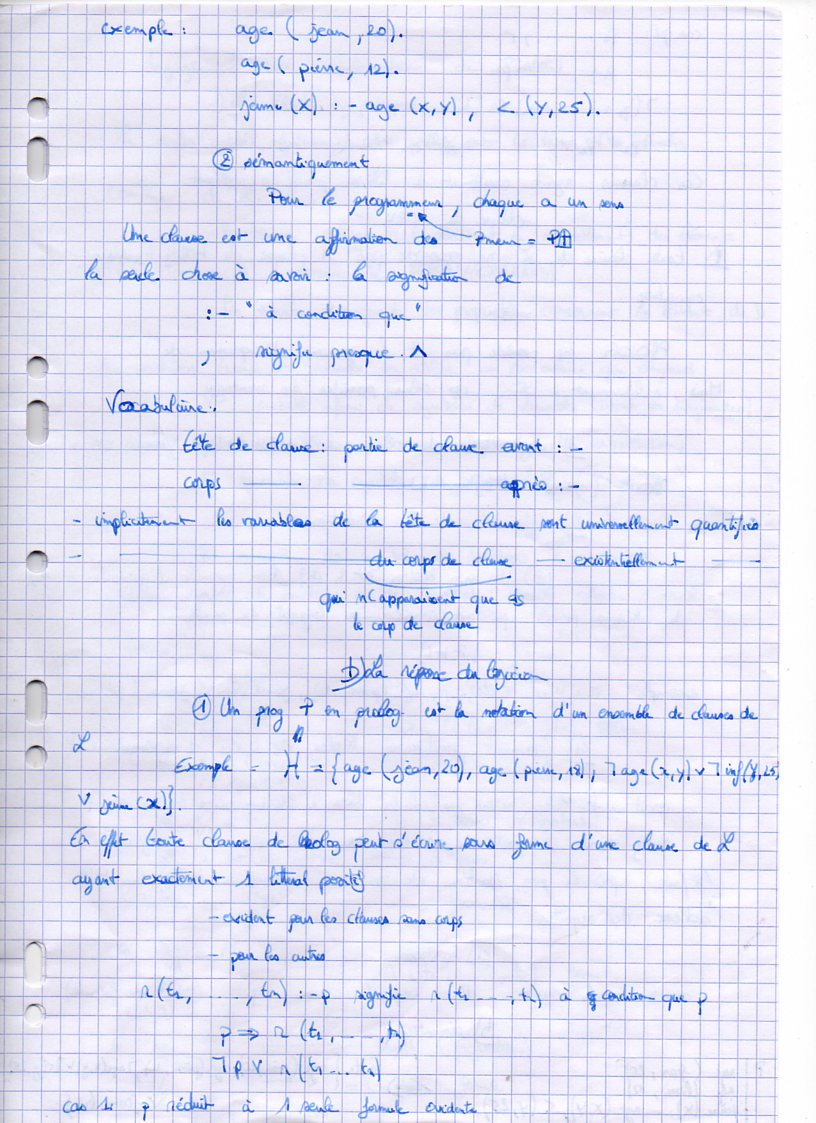 exemple : age (jean, 20).
age (pierre, 12).
jeune (X) :- age (X,Y), < (Y,25).
② sémantiquement
Pour le programmeur, chaque a un sens
Une clause est une affirmation des Pmeur =
la seule chose à savoir : la signification de
:- " à condition que "
, signifie presque ∧
Vocabulaire :
tête de clause : partie de clause avant :-
corps ——— ——————— après :-
- implicitement les variables de la tête de clause sont universellement quantifiés
- ——————— du corps de clause —— existentiellement ——
qui n'apparaissent que ds
le corp de clause
D) La réponse du logicien
① Un prog P en prolog est la notation d'un ensemble de clauses de
L
Exemple = H = {age (jean, 20), age (pierre, 18), ¬ age (x,y) ∨ ¬ inf (y,25)
∨ jeune (x)}.
En effet toute clause de Prolog peut s'écrire sous forme d'une clause de L
ayant exactement 1 littéral positif
- évident pour les clauses sans corps
- pour les autres
r(t1, ......, tn) :- p signifie r(t1 ..., tn) à condition que p
p ⇒ r (t1, ...., tn)
¬ p ∨ r (t1 ... tn)
cas 1. p réduit à 1 seule formule évidente